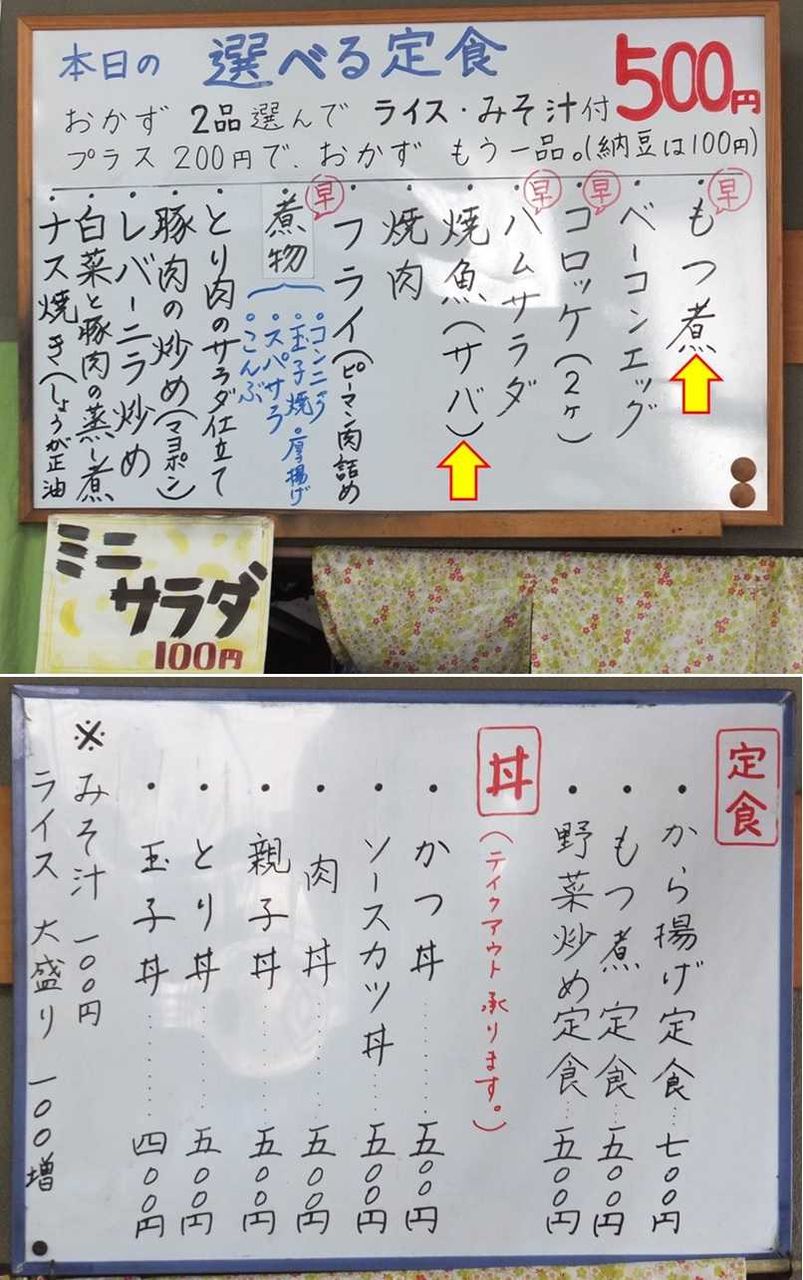 本日の 選べる定食 500円
おかず 2品選んで ライス・みそ汁付
プラス 200円で、おかず もう一品。(納豆は100円)
早
・もつ煮
・ベーコンエッグ
早
・コロッケ(2ヶ)
早
・ハムサラダ
・焼魚(サバ)
・焼肉
・フライ(ピーマン肉詰め)
早
・煮物
・コンニャク
・玉子焼・厚揚げ
・スパサラ
・こんぶ
・とり肉のサラダ仕立て
・豚肉の炒め(マヨポン)
・レバーニラ炒め
・白菜と豚肉の蒸し煮
・ナス焼き(しょうが正油
ミニ
サラダ
100円
定食
・から揚げ定食…七〇〇円
・もつ煮定食…五〇〇円
・野菜炒め定食…五〇〇円
丼
(テイクアウト承ります。)
・かつ丼……五〇〇円
・ソースカツ丼……五〇〇円
・肉丼……五〇〇円
・親子丼……五〇〇円
・とり丼……五〇〇円
・玉子丼……四〇〇円
※みそ汁 一〇〇円
ライス 大盛り 一〇〇増